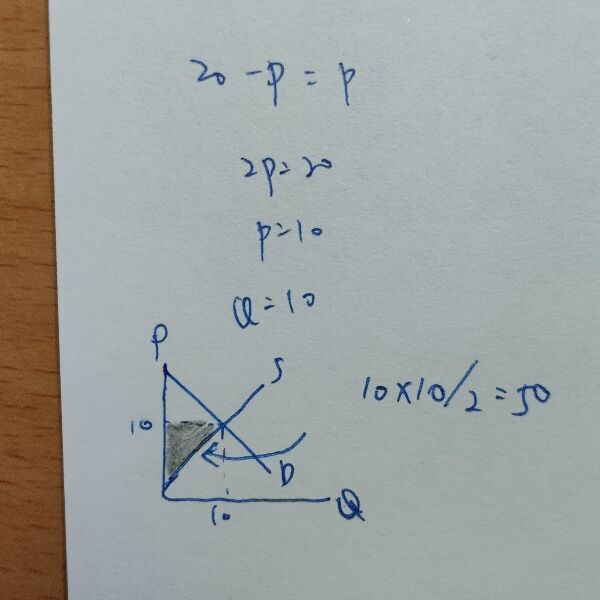 20 - P = P
2P = 20
P = 10
Q = 10
P
S
10 × 10 / 2 = 50
10
D
10
Q